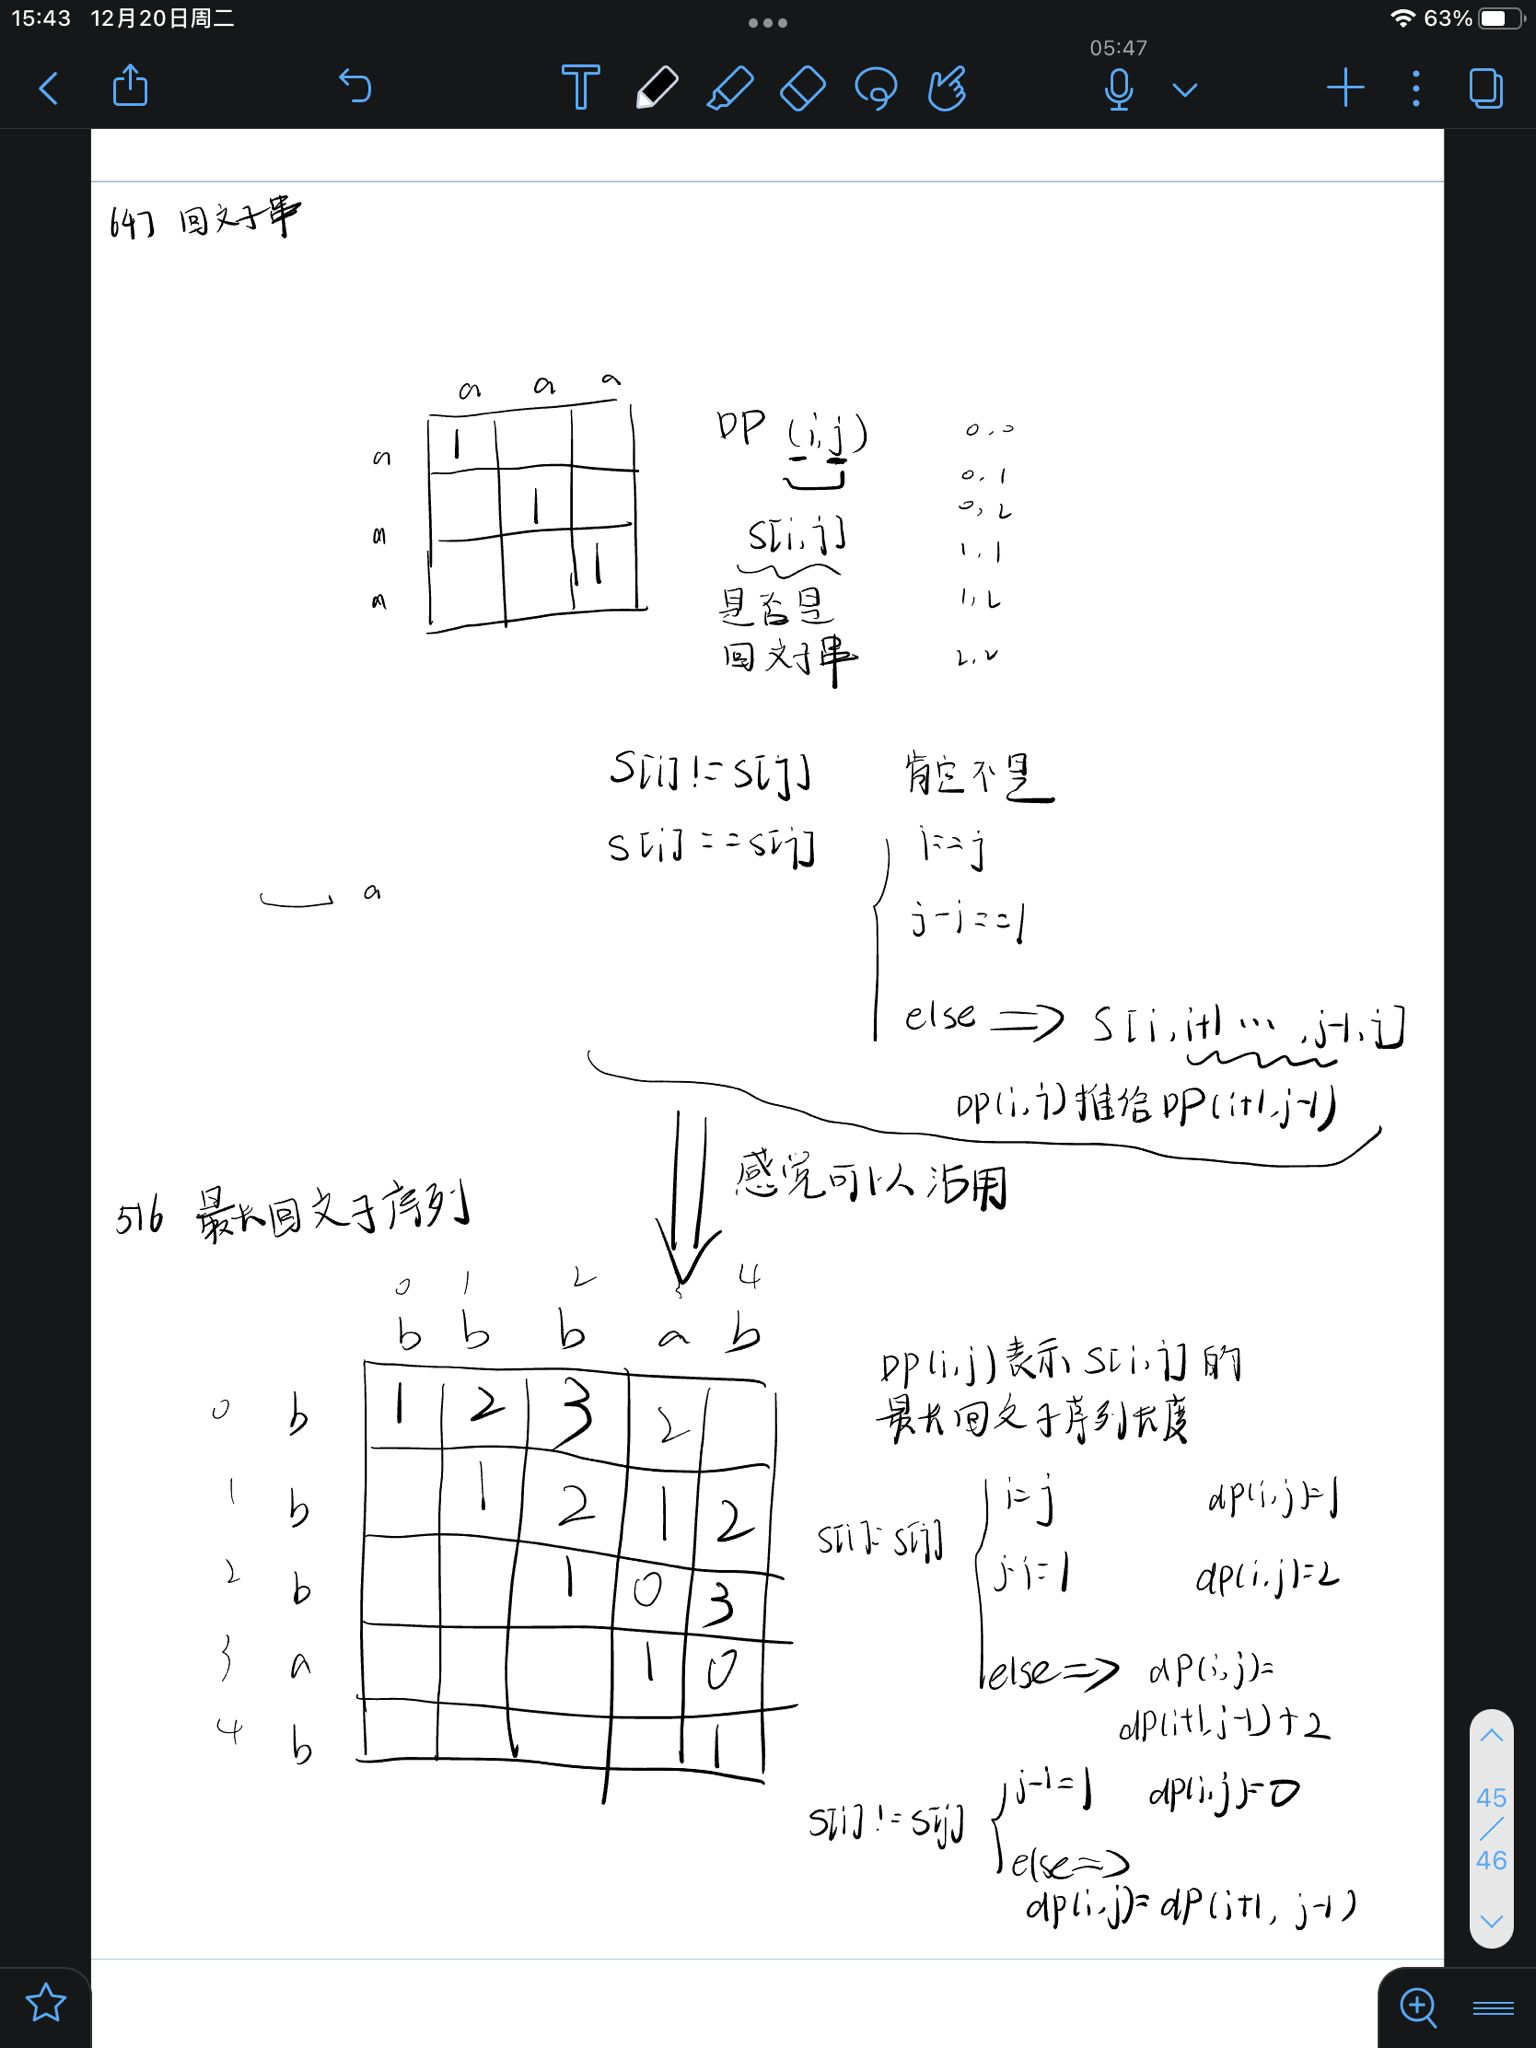 15:43 12月20日周二
63%
05:47
T
647 回文子串
a a a
a 1
a 1
a 1
DP (i,j)
S[i,j]
是否是
回文子串
0,0
0,1
0,2
1,1
1,2
2,2
S[i] != S[j] 肯定不是
S[i] == S[j]
i==j
j-i==1
else => S[i,i+1 … ,j-1,j]
DP(i,j)推给DP(i+1,j-1)
a
感觉可以沿用
516 最长回文子序列
0 1 2 3 4
b b b a b
0 b 1 2 3 2
1 b 1 2 1 2
2 b 1 0 3
3 a 1 0
4 b 1
DP(i,j)表示S[i,j]的
最长回文子序列长度
S[i]=S[j]
i=j dp(i,j)=1
j-i=1 dp(i,j)=2
else=> dp(i,j)=
dp(i+1,j-1)+2
S[i] != S[j]
j-i=1 dp(i,j)=0
else=>
dp(i,j)=dp(i+1, j-1)
45
/
46